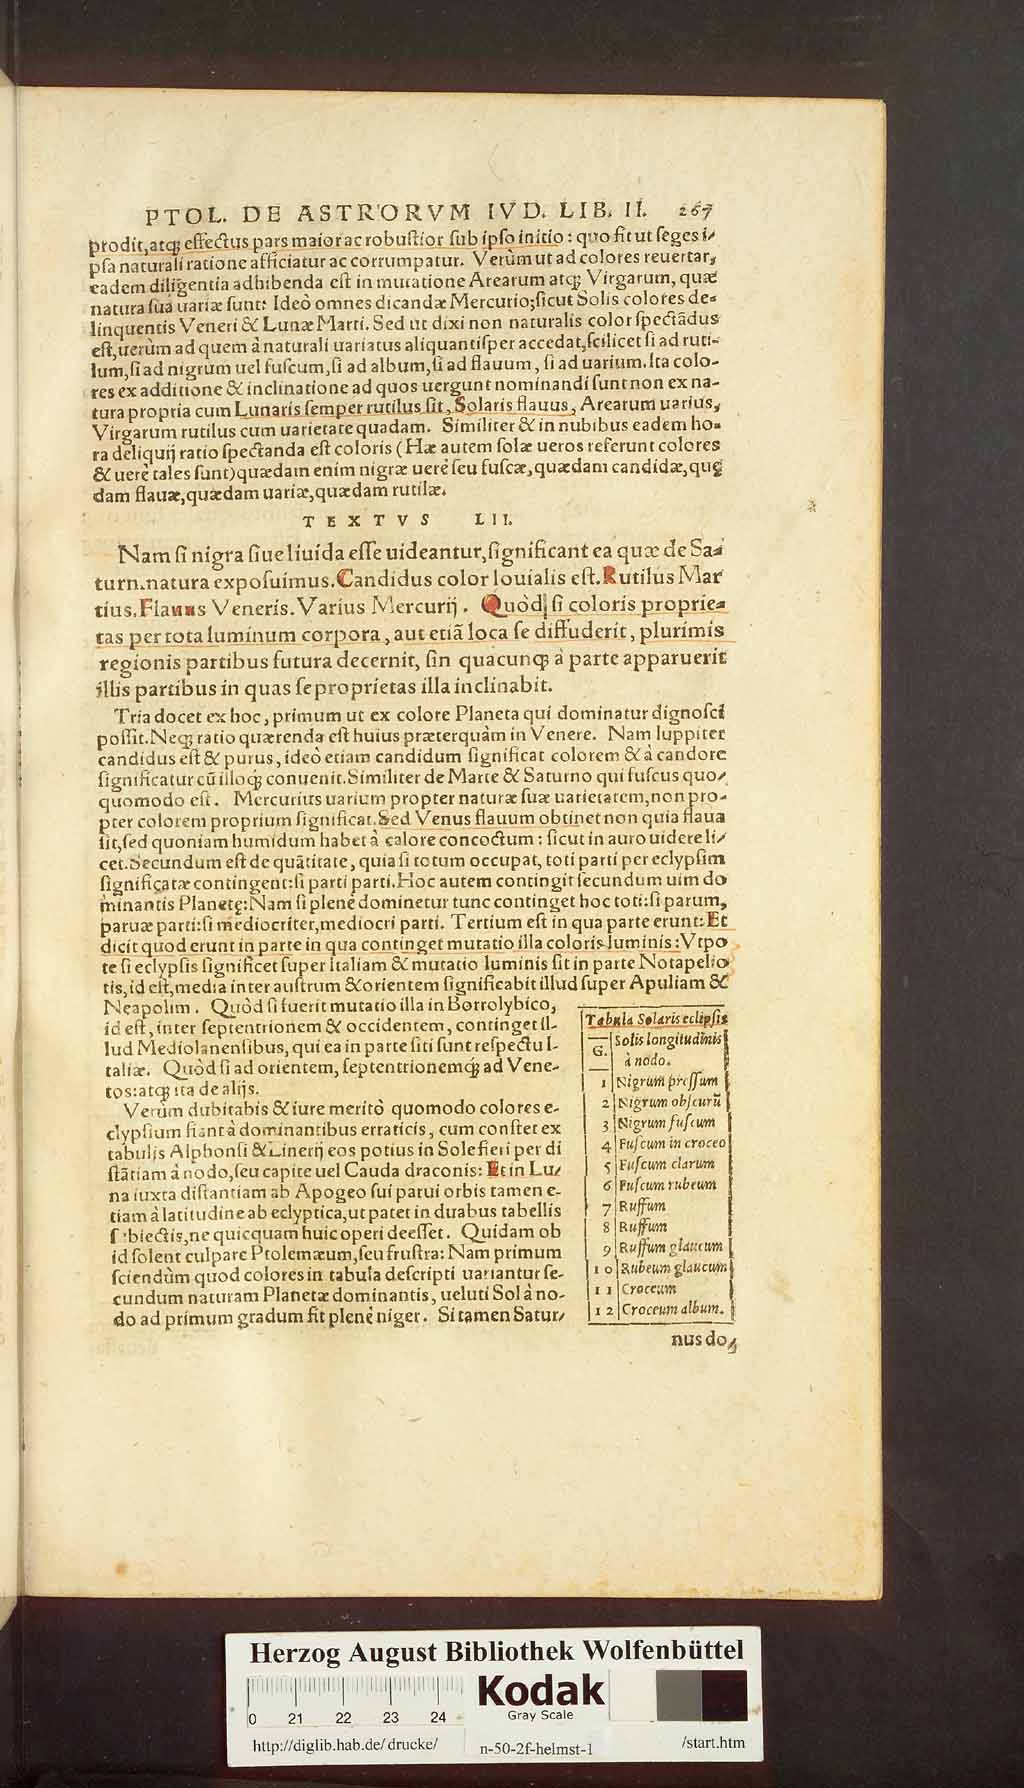 PTOL. DE ASTRORVM IVD. LIB. II. 267
prodit,atq; effectus pars maior ac robustior sub ipso initio: quo fit ut seges i/
psa naturali ratione afficiatur ac corrumpatur. Verùm ut ad colores reuertar,
eadem diligentia adhibenda est in mutatione Arearum atq; Virgarum, quæ
natura suâ uariæ sunt: Ideò omnes dicandæ Mercurio;sicut Solis colores de-
linquentis Veneri & Lunæ Marti. Sed ut dixi non naturalis color spectãdus
est,uerùm ad quem à naturali uariatus aliquantisper accedat,scilicet si ad ruti-
lum,si ad nigrum uel fuscum,si ad album,si ad flauum, si ad uarium.Ita colo-
res ex additione & inclinatione ad quos uergunt nominandi sunt non ex na-
tura propria cum Lunaris semper rutilus sit, Solaris flauus, Arearum uarius,
Virgarum rutilus cum uarietate quadam. Similiter & in nubibus eadem ho-
ra deliquij ratio spectanda est coloris (Hæ autem solæ ueros referunt colores
& uerè tales sunt)quædam enim nigræ uerè seu fuscæ,quædam candidæ,quę
dam flauæ,quædam uariæ,quædam rutilæ.
TEXTVS LII.
Nam si nigra siue liuida esse uideantur,significant ea quæ de Sa-
turn.natura exposuimus.Candidus color Iouialis est.Rutilus Mar
tius.Flauus Veneris.Varius Mercurij. Quòd si coloris proprie-
tas per tota luminum corpora, aut etiã loca se diffuderit, plurimis
regionis partibus futura decernit, sin quacunq; à parte apparuerit
illis partibus in quas se proprietas illa inclinabit.
Tria docet ex hoc, primum ut ex colore Planeta qui dominatur dignosci
possit.Neq; ratio quærenda est huius præterquàm in Venere. Nam Iuppiter
candidus est & purus, ideò etiam candidum significat colorem & à candore
significatur cũ illoq; conuenit.Similiter de Marte & Saturno qui fuscus quo/
quomodo est. Mercurius uarium propter naturæ suæ uarietatem,non pro-
pter colorem proprium significat.Sed Venus flauum obtinet non quia flaua
sit,sed quoniam humidum habet à calore concoctum: sicut in auro uidere li/
cet.Secundum est de quãtitate, quia si totum occupat, toti parti per eclypsim
significatæ contingent:si parti parti.Hoc autem contingit secundum uim do
minantis Planetę:Nam si plenè dominetur tunc continget hoc toti:si parum,
paruæ parti:si mediocriter,mediocri parti. Tertium est in qua parte erunt: Et
dicit quod erunt in parte in qua continget mutatio illa coloris luminis: Vtpo
te si eclypsis significet super Italiam & mutatio luminis sit in parte Notapelio
tis,id est,media inter austrum & orientem significabit illud super Apuliam &
Neapolim. Quòd si fuerit mutatio illa in Borrolybico,
id est, inter septentrionem & occidentem, continget il-
lud Mediolanensibus, qui ea in parte siti sunt respectu I-
taliæ. Quòd si ad orientem, septentrionemq; ad Vene-
tos:atq; ita de alijs.
Verùm dubitabis & iure meritò quomodo colores e-
clypsium fiant à dominantibus erraticis, cum constet ex
tabulis Alphonsi & Linerij eos potius in Sole fieri per di
stãtiam à nodo, seu capite uel Cauda draconis: Et in Lu/
na iuxta distantiam ab Apogeo sui parui orbis tamen e-
tiam à latitudine ab eclyptica,ut patet in duabus tabellis
s biectis,ne quicquam huic operi deesset. Quidam ob
id solent culpare Ptolemæum,seu frustra: Nam primum
sciendùm quod colores in tabula descripti uariantur se-
cundum naturam Planetæ dominantis, ueluti Sol à no-
do ad primum gradum fit plenè niger. Si tamen Satur/
Tabula Solaris eclipsis
G. Solis longitudinis
à nodo.
1 Nigrum pressum
2 Nigrum obscurũ
3 Nigrum fuscum
4 Fuscum in croceo
5 Fuscum clarum
6 Fuscum rubeum
7 Ruffum
8 Ruffum
9 Ruffum glaucum
10 Rubeum glaucum
11 Croceum
12 Croceum album.
nus do/
Herzog August Bibliothek Wolfenbüttel
0 21 22 23 24
Kodak
Gray Scale
http://diglib.hab.de/drucke/ n-50-2f-helmst-1 /start.htm